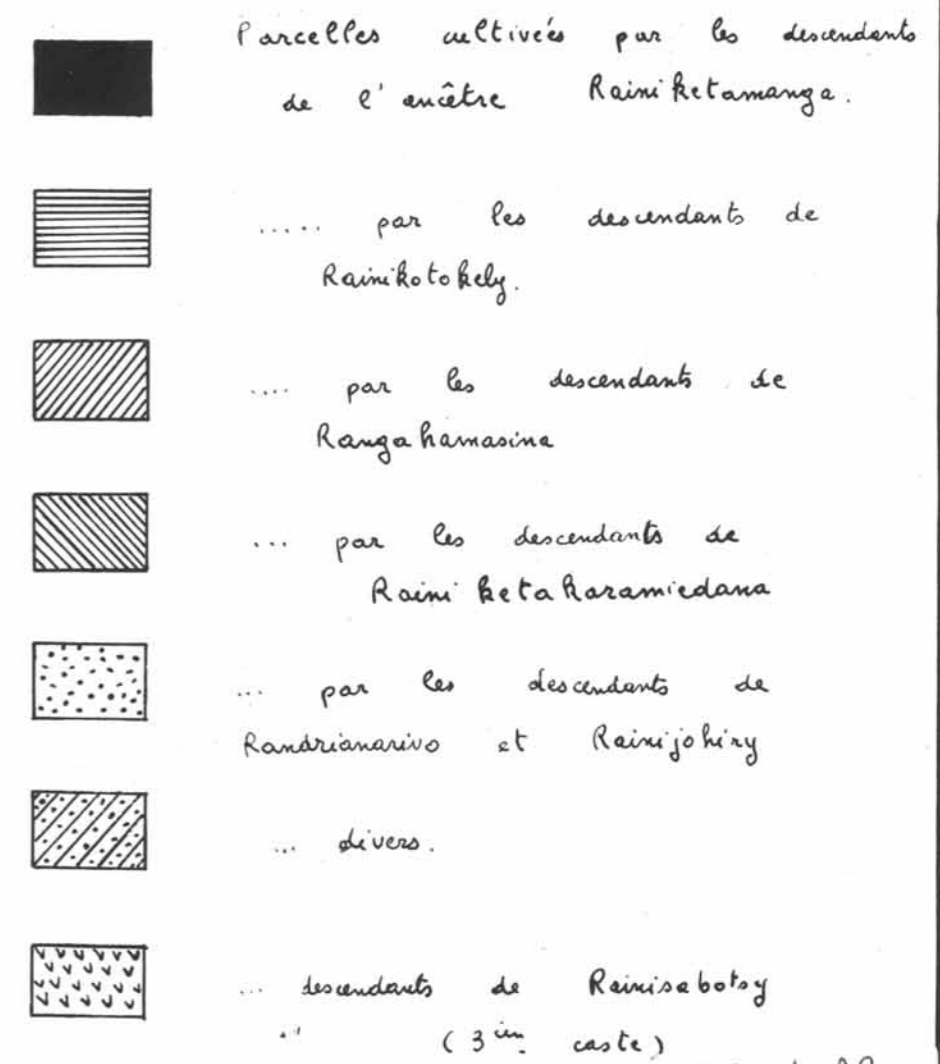 Parcelles cultivées par les descendants
de l'ancêtre Rainiketamanga.
..... par les descendants de
Rainikotokely.
.... par les descendants de
Rangahamasina
... par les descendants de
Rainiketakaramiedana
... par les descendants de
Randrianarivo et Rainijohiry
... divers.
... descendants de Rainisabotsy
(3ième caste)